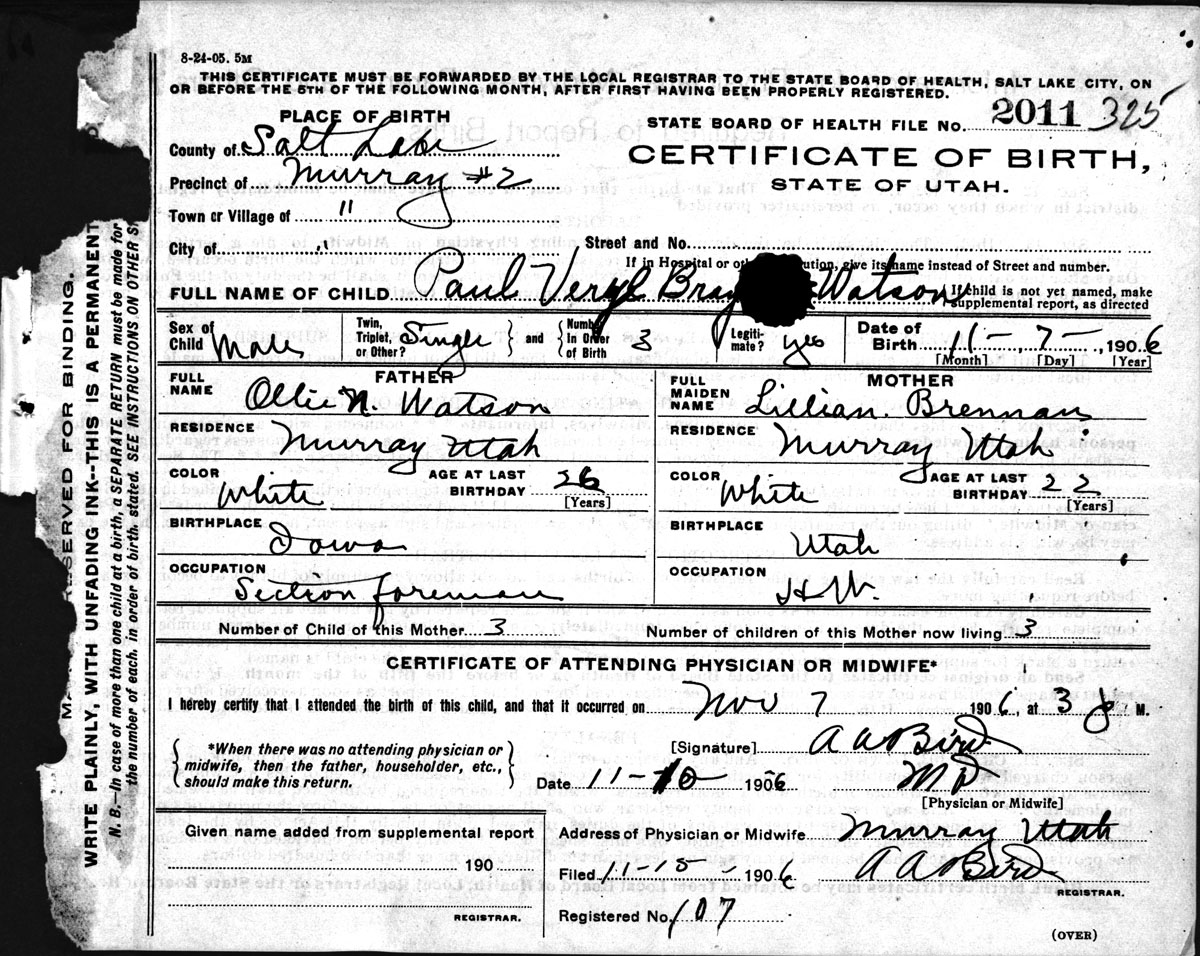 8-24-05. 5M
THIS CERTIFICATE MUST BE FORWARDED BY THE LOCAL REGISTRAR TO THE STATE BOARD OF HEALTH, SALT LAKE CITY, ON
OR BEFORE THE 5TH OF THE FOLLOWING MONTH, AFTER FIRST HAVING BEEN PROPERLY REGISTERED.
PLACE OF BIRTH
County of Salt Lake
Precinct of Murray #2
Town or Village of "
City of "
STATE BOARD OF HEALTH FILE No. 2011 325
CERTIFICATE OF BIRTH,
STATE OF UTAH.
Street and No.
If in Hospital or other Institution, give its name instead of Street and number.
FULL NAME OF CHILD Paul Veryl Watson
If child is not yet named, make
supplemental report, as directed
Sex of Child Male
Twin, Triplet, or Other? Single
and Number in Order of Birth 3
Legitimate? yes
Date of Birth 11 - 7 - , 1906
[Month] [Day] [Year]
FATHER
FULL NAME Ollie N. Watson
RESIDENCE Murray Utah
COLOR White AGE AT LAST BIRTHDAY 26
[Years]
BIRTHPLACE Iowa
OCCUPATION Section foreman
MOTHER
FULL MAIDEN NAME Lillian Brennan
RESIDENCE Murray Utah
COLOR White AGE AT LAST BIRTHDAY 22
[Years]
BIRTHPLACE Utah
OCCUPATION H.W.
Number of Child of this Mother 3
Number of children of this Mother now living 3
CERTIFICATE OF ATTENDING PHYSICIAN OR MIDWIFE*
I hereby certify that I attended the birth of this child, and that it occurred on Nov 7 1906, at 3 M.
*When there was no attending physician or
midwife, then the father, householder, etc.,
should make this return.
[Signature] A A Bird
Date 11-10 1906 M D
[Physician or Midwife]
Given name added from supplemental report
190
REGISTRAR.
Address of Physician or Midwife Murray Utah
Filed 11-15- 1906 A A Bird
REGISTRAR.
Registered No. 107
(OVER)
RESERVED FOR BINDING.
WRITE PLAINLY, WITH UNFADING INK--THIS IS A PERMANENT
N. B.--In case of more than one child at a birth, a SEPARATE RETURN must be made for
the number of each, in order of birth, stated. SEE INSTRUCTIONS ON OTHER